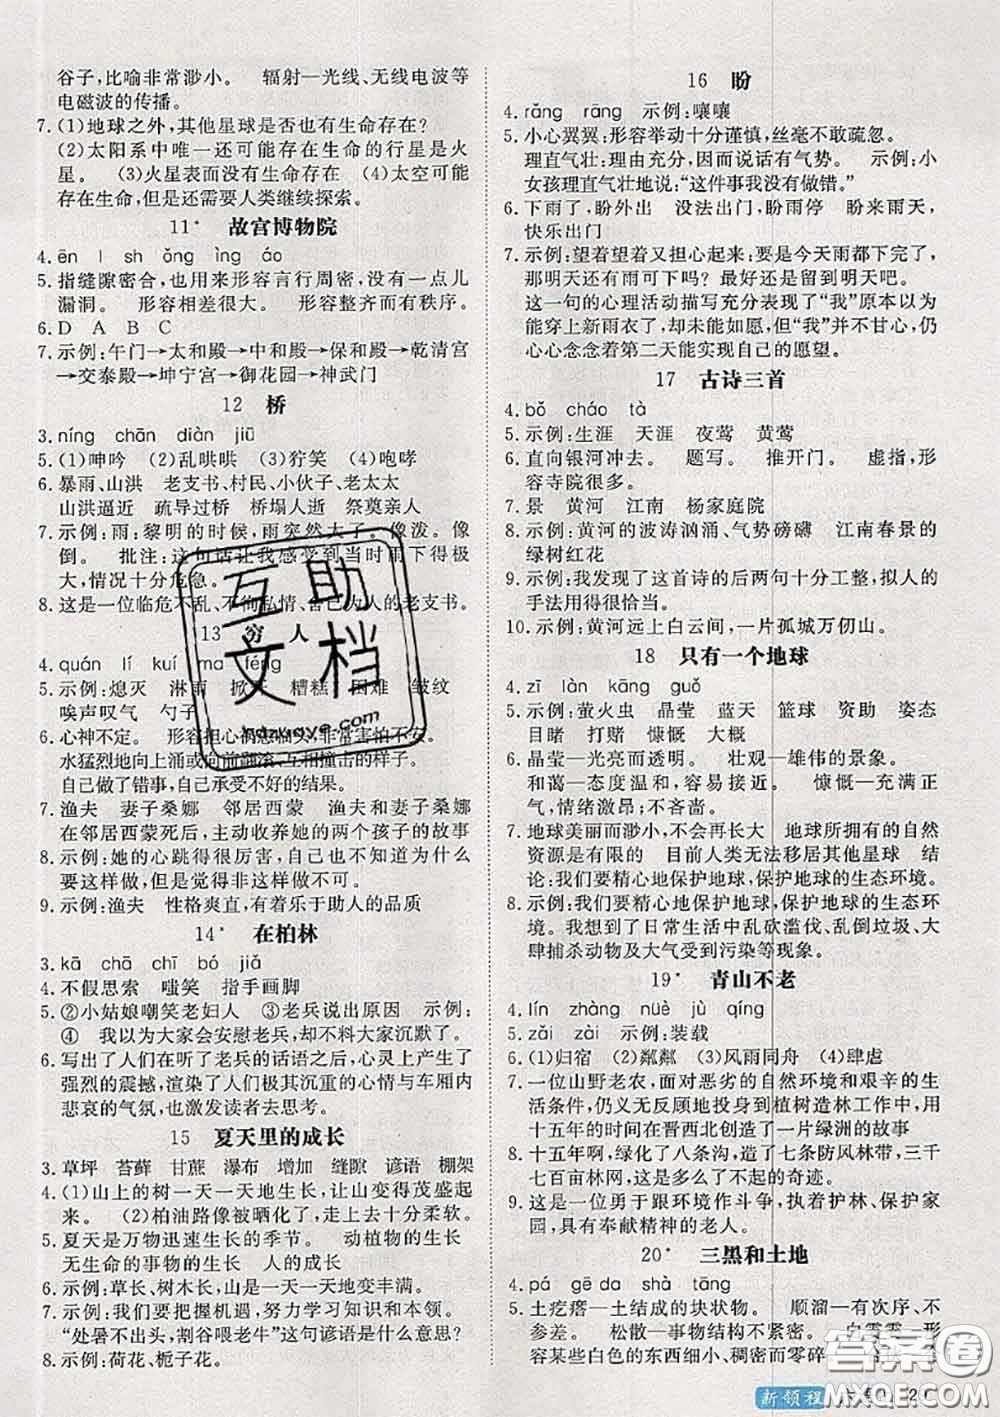 谷子,比喻非常渺小。 辐射—光线、无线电波等
电磁波的传播。
7.(1)地球之外,其他星球是否也有生命存在?
(2)太阳系中唯一还可能存在生命的行星是火
星。 (3)火星表面没有生命存在 (4)太空可能
存在生命,但是还需要人类继续探索。
11* 故宫博物院
4.ēn l sh ǒng ìng áo
5.指缝隙密合,也用来形容言行周密,没有一点儿
漏洞。 形容相差很大。 形容整齐而有秩序。
6.D A B C
7.示例:午门→太和殿→中和殿→保和殿→乾清宫
→交泰殿→坤宁宫→御花园→神武门
12 桥
3.níng chān diàn jiū
5.(1)呻吟 (2)乱哄哄 (3)狞笑 (4)咆哮
6.暴雨、山洪 老支书、村民、小伙子、老太太
山洪逼近 疏导过桥 桥塌人逝 祭奠亲人
7.示例:雨:黎明的时候,雨突然大了。像泼。像
倒。 批注:这句话让我感受到当时雨下得极
大,情况十分危急。
8.这是一位临危不乱、不徇私情、舍己为人的老支书。
13 穷人
4.quán lí kuí ma féng
5.示例:熄灭 淋雨 掀开 糟糕 困难 皱纹
唉声叹气 勺子
6.心神不定。 形容担心祸患临头,非常害怕不安。
水猛烈地向上涌或向前翻滚、互相撞击的样子。
自己做了错事,自己承受不好的结果。
7.渔夫 妻子桑娜 邻居西蒙 渔夫和妻子桑娜
在邻居西蒙死后,主动收养她的两个孩子的故事
8.示例:她的心跳得很厉害,自己也不知道为什么
要这样做,但是觉得非这样做不可。
9.示例:渔夫 性格爽直,有着乐于助人的品质
14* 在柏林
3.kā chā chī bó jiǎ
4.不假思索 嗤笑 指手画脚
5.②小姑娘嘲笑老妇人 ③老兵说出原因 示例:
④ 我以为大家会安慰老兵,却不料大家沉默了。
6.写出了人们在听了老兵的话语之后,心灵上产生了
强烈的震撼,渲染了人们极其沉重的心情与车厢内
悲哀的气氛,也激发读者去思考。
15 夏天里的成长
3.草坪 苔藓 甘蔗 瀑布 增加 缝隙 谚语 棚架
4.(1)山上的树一天一天地生长,让山变得茂盛起
来。 (2)柏油路像被晒化了,走上去十分柔软。
5.夏天是万物迅速生长的季节。 动植物的生长
无生命的事物的生长 人的成长
6.示例:草长,树木长,山是一天一天地变丰满。
7.示例:我们要把握机遇,努力学习知识和本领。
“处暑不出头,割谷喂老牛”这句谚语是什么意思?
8.示例:荷花、栀子花。
16 盼
4.rǎng rāng 示例:嚷嚷
5.小心翼翼:形容举动十分谨慎,丝毫不敢疏忽。
理直气壮:理由充分,因而说话有气势。 示例:小
女孩理直气壮地说:“这件事我没有做错。”
6.下雨了,盼外出 没法出门,盼雨停 雨停了,
快乐出门
7.示例:望着望着又担心起来:要是今天雨都下完了,
那明天还有雨可下吗? 最好还是留到明天吧。
这一句的心理活动描写充分表现了“我”原本以为
能穿上新雨衣了,却未能如愿,但“我”并不甘心,仍
心心念念着第二天能实现自己的愿望。
17 古诗三首
4.bǒ cháo tà
5.示例:生涯 天涯 夜莺 黄莺
6.直向银河冲去。 题写。 推开门。 虚指,形
容寺院很多。
7.景 黄河 江南 杨家庭院
8.示例:黄河的波涛汹涌、气势磅礴 江南春景的
绿树红花
9.示例:我发现了这首诗的后两句十分工整,拟人的
手法用得很恰当。
10.示例:黄河远上白云间,一片孤城万仞山。
18 只有一个地球
4.zī làn kāng guǒ
5.示例:萤火虫 晶莹 蓝天 篮球 资助 姿态
目睹 打赌 慷慨 大概
6.晶莹—光亮而透明。 壮观—雄伟的景象。
和蔼—态度温和,容易接近。 慷慨—充满正
气,情绪激昂;不吝啬。
7.地球美丽而渺小,不会再长大 地球所拥有的自然
资源是有限的 目前人类无法移居其他星球 结
论:我们要精心地保护地球,保护地球的生态环境。
8.示例:我们要精心地保护地球,保护地球的生态环
境。 我想到了日常生活中乱砍滥伐、乱倒垃圾、大
肆捕杀动物及大气受到污染等现象。
19* 青山不老
4.lín zhàng nüè jù qíng
5.zǎi zài 示例:装载
6.(1)归宿 (2)粼粼 (3)风雨同舟 (4)肆虐
7.一位山野老农,面对恶劣的自然环境和艰辛的生
活条件,义无反顾地投身到植树造林工作中,用
十五年的时间在晋西北创造了一片绿洲的故事
8.十五年啊,绿化了八条沟,造了七条防风林带,三千
七百亩林网,这是一个多么了不起的奇迹。
9.这是一位勇于跟环境作斗争,执着护林、保护家
园,具有奉献精神的老人。
20* 三黑和土地
4.pá gē da shà tāng
5.土疙瘩—土结成的块状物。 顺溜—有次序,不
参差。 松散—事物结构不紧密。 白霎霎—形
容某些白色的东西细小、稠密而零碎
互助
文档
hdzuoye.com
答案圈
MXQE.COM
新领程